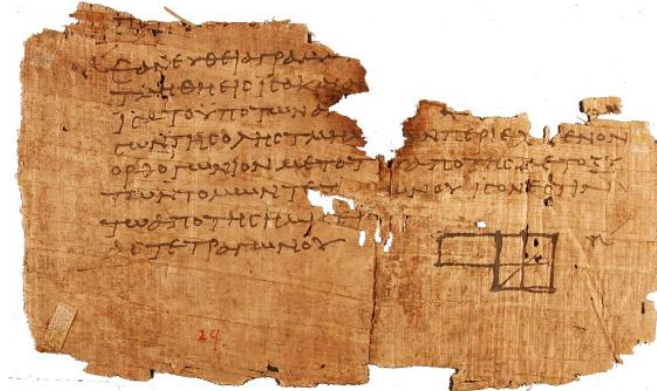 ΕΑΝΕΥΘΕΙΑΓΡΑΜΜ
ΤΜΗΘΗΕΙϹΙϹΑΚΑΙ
ΙϹΑΤΟΥΠΟΤΩΝΑ
ΙϹΩΝΤΗϹΟΛΗϹΤΜΗ ΩΝΠΕΡΙΕΧ ΜΕΝΟΝ
ΟΡΘΟΓΩΝΙΟΝΜΕΤΟΤ ΑΠΟΤΗϹΜΕΤΟΞΥ
ΤΩΝΤΟΜΩΝΤΕΤ ΩΝΟΥΙϹΟΝΕϹΤΙΝ
ΤΩΑΠΟΤΗϹΗΜΙϹΕΙ
ΑϹΤΕΤΡΑΓΩΝΟΥ
29